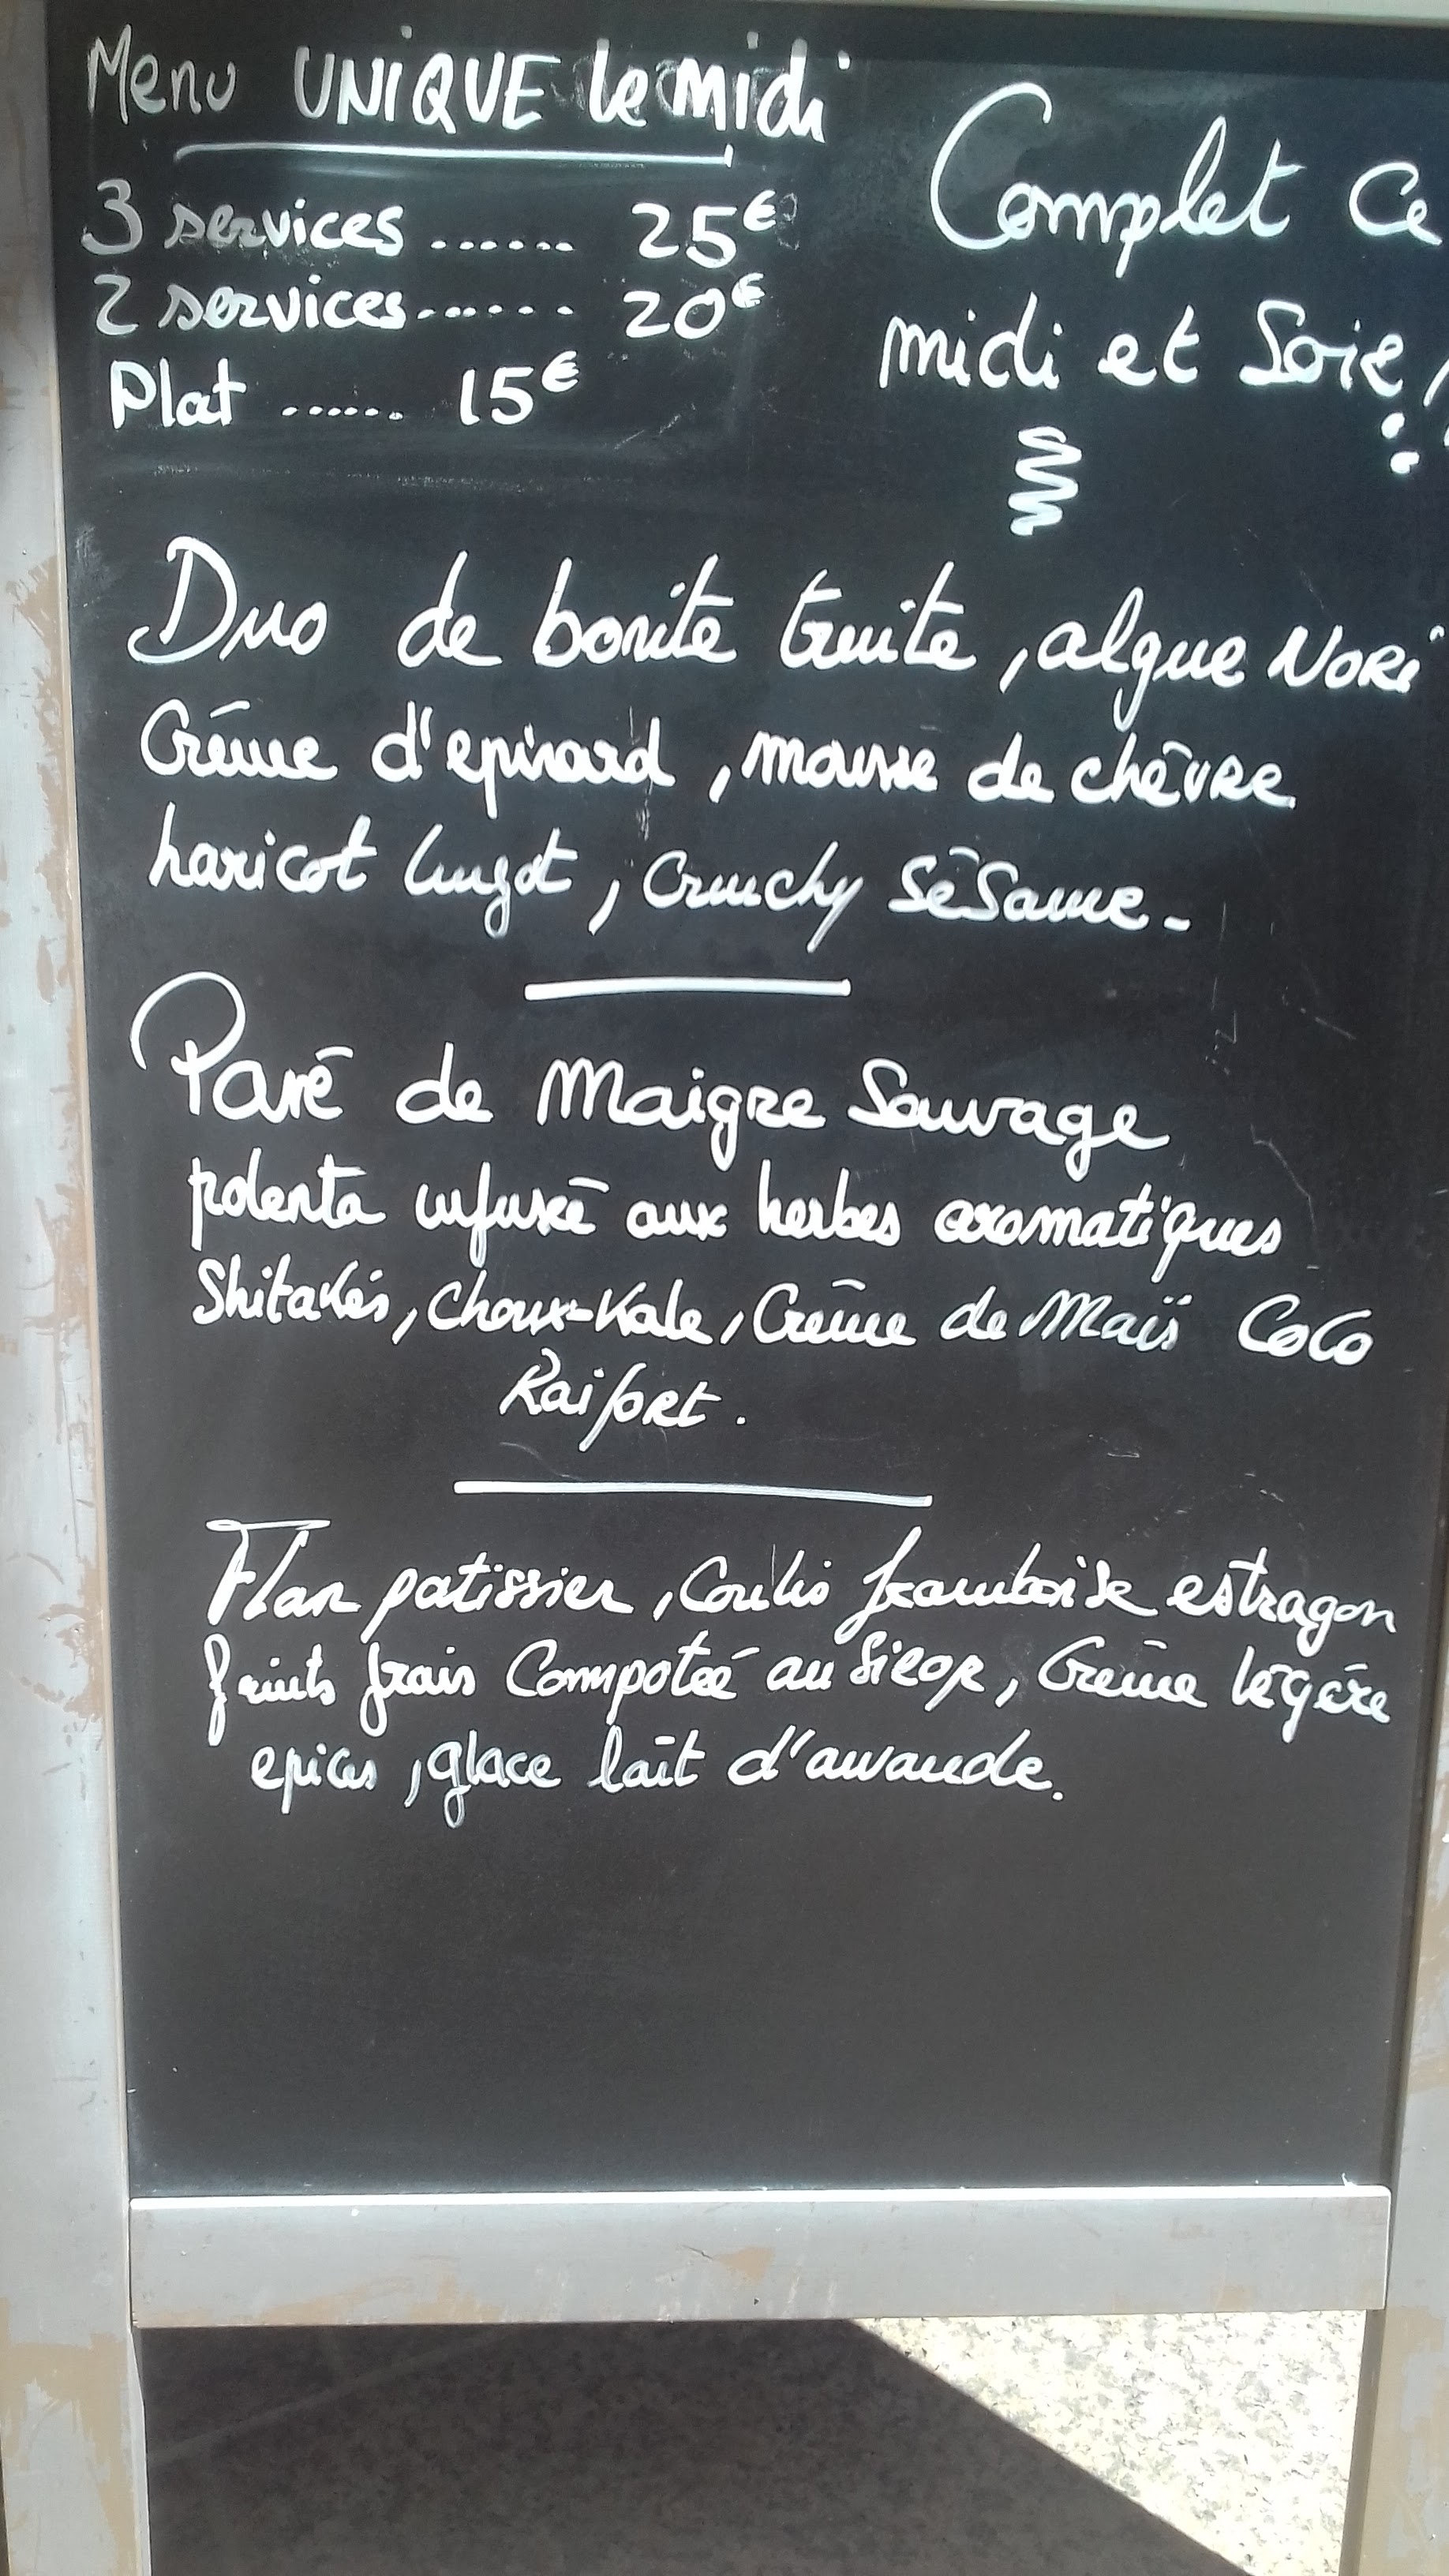 Menu UNIQUE le Midi
3 services ....... 25€
2 services ....... 20€
Plat ...... 15€
Complet Ce
midi et Soir
Duo de bonite truite, algue NoRi
Crème d'epinard, mousse de chèvre
haricot lingot, Crunchy SéSame.
Pavé de Maigre Sauvage
polenta infusée aux herbes aromatiques
Shitakés, Choux-Kale, Crème de Maïs CoCo
Raifort.
Flan patissier, Coulis framboise estragon
fruits frais Compotée au Sirop, Crème légère
epices, glace lait d'amande.